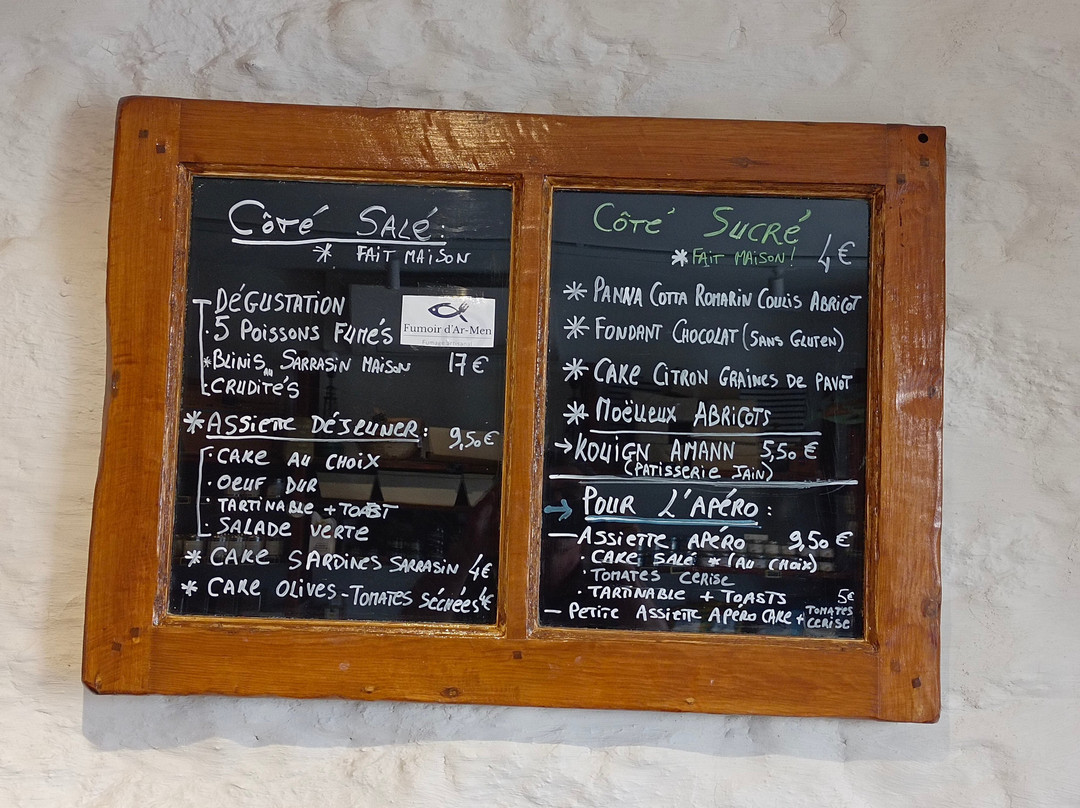 Côté Salé:
* FAIT MAISON
DÉGUSTATION
5 Poissons Fumés
Fumoir d'Ar-Men
* BLINIS au SARRASIN MAISON 17 €
CRUDITÉS
* ASSIETTE DÉJEUNER: 9,50 €
· CAKE AU CHOIX
· OEUF DUR
· TARTINABLE + TOAST
· SALADE VERTE
* CAKE SARDINES SARRASIN 4€
* CAKE OLIVES - TOMATES SÉCHÉES 4€
Côté Sucré
* FAIT MAISON! 4 €
* PANNA COTTA ROMARIN COULIS ABRICOT
* FONDANT CHOCOLAT (SANS GLUTEN)
* CAKE CITRON GRAINES DE PAVOT
* MOËLLEUX ABRICOTS
→ KOUIGN AMANN 5,50 €
(PATISSERIE JAIN)
→ POUR L'APÉRO:
— ASSIETTE APÉRO 9,50 €
· CAKE SALÉ * (AU CHOIX)
· TOMATES CERISE
· TARTINABLE + TOASTS 5€
— PETITE ASSIETTE APÉRO CAKE + TOMATES CERISE